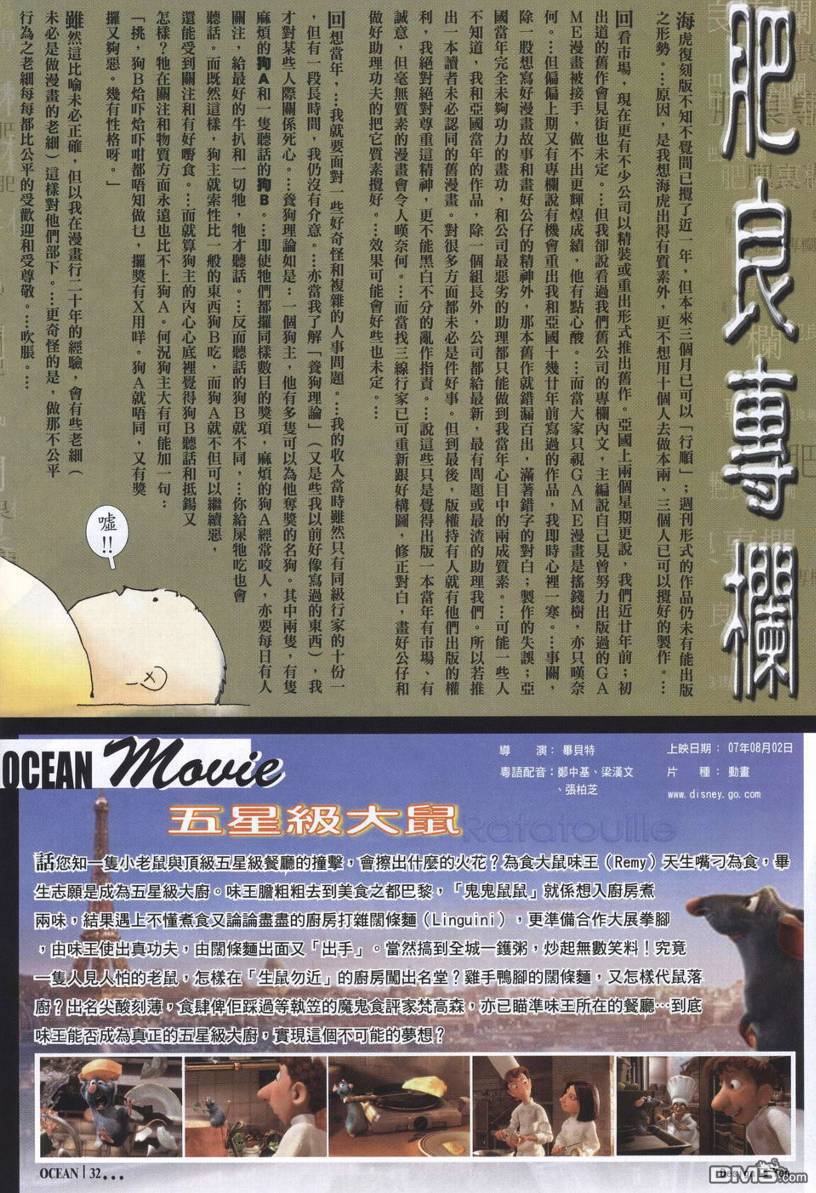 肥良專欄
海虎復刻版不知不覺間已攪了近一年，但本來三個月已可以「行順」；週刊形式的作品仍未有能出版
之形勢。…原因，是我想海虎出得有質素外，更不想用十個人去做本兩、三個人已可以攪好的製作。…
回看市場，現在更有不少公司以精裝或重出形式推出舊作。亞國上兩個星期更說，我們近廿年前；初
出道的舊作會見街也未定。…但我卻說看過我們舊公司的專欄內文，主編說自己見曾努力出版過的GA
ME漫畫被接手，做不出更輝煌成績，他有點心酸。…而當大家只視GAME漫畫是搖錢樹，亦只嘆奈
何。…但偏偏上期又有專欄說有機會重出我和亞國十幾廿年前寫過的作品，我即時心裡一寒。…事關，
除一股想寫好漫畫故事和畫好公仔的精神外，那本舊作就錯漏百出，滿著錯字的對白；製作的失誤；亞
國當年完全未夠功力的畫功，和公司最惡劣的助理都只能做到我當年心目中的兩成質素。…可能一些人
不知道，我和亞國當年的作品，除一個組長外，公司都給最新，最有問題或最渣的助理我們。所以若推
出一本讀者未必認同的舊漫畫。對很多方面都未必是件好事。但到最後，版權持有人就有他們出版的權
利，我絕對絕對尊重這精神，更不能黑白不分的亂作指責。…說這些只是覺得出版一本當年有市場、有
誠意，但毫無質素的漫畫會令人嘆奈何。…而當找三線行家已可重新跟好構圖，修正對白，畫好公仔和
做好助理功夫的把它質素攪好。…效果可能會好些也未定。…
回想當年，…我就要面對一些好奇怪和複雜的人事問題。…我的收入當時雖然只有同級行家的十份一
，但有一段長時間，我仍沒有介意。…亦當我了解「養狗理論」（又是些我以前好像寫過的東西），我
才對某些人際關係死心。…養狗理論如是：一個狗主，他有多隻可以為他奪獎的名狗。其中兩隻，有隻
麻煩的狗A和一隻聽話的狗B。…即使牠們都攞同樣數目的獎項，麻煩的狗A經常咬人，亦要每日有人
關注，給最好的牛扒和一切牠，牠才聽話。…反而聽話的狗B就不同，…你給屎牠吃也會
聽話。而既然這樣，狗主就索性比一般的東西狗B吃，而狗A就不但可以繼續惡，
還能受到關注和有好嘢食。…而就算狗主的內心心底裡覺得狗B聽話和抵錫又
怎樣？牠在關注和物質方面永遠也比不上狗A。何況狗主大有可能加一句：
「挑，狗B烚吓烚吓咁都唔知做乜，攞獎有X用咩。狗A就唔同，又有獎
攞又夠惡。幾有性格呀。」
雖然這比喻未必正確，但以我在漫畫行二十年的經驗，會有些老細（
未必是做漫畫的老細）這樣對他們部下。…更奇怪的是，做那不公平
行為之老細每每都比公平的受歡迎和受尊敬。…吹脹。…
噓!!
OCEAN Movie
導　演：畢貝特
粵語配音：鄭中基、梁漢文
、張柏芝
上映日期：07年08月02日
片　種：動畫
www.disney.go.com
五星級大鼠
Ratatouille
話您知一隻小老鼠與頂級五星級餐廳的撞擊，會擦出什麼的火花？為食大鼠味王（Remy）天生嘴刁為食，畢
生志願是成為五星級大廚。味王膽粗粗去到美食之都巴黎，「鬼鬼鼠鼠」就係想入廚房煮
兩味，結果遇上不懂煮食又論論盡盡的廚房打雜闊條麵（Linguini），更準備合作大展拳腳
，由味王使出真功夫，由闊條麵出面又「出手」。當然搞到全城一鑊粥，炒起無數笑料！究竟
一隻人見人怕的老鼠，怎樣在「生鼠勿近」的廚房闖出名堂？雞手鴨腳的闊條麵，又怎樣代鼠落
廚？出名尖酸刻薄，食肆俾佢踩過等執笠的魔鬼食評家梵高森，亦已瞄準味王所在的餐廳…到底
味王能否成為真正的五星級大廚，實現這個不可能的夢想？
OCEAN | 32...
DM5.com